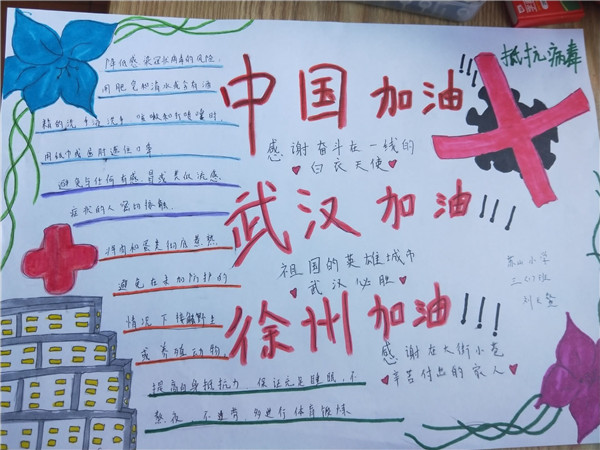 降低感染冠状病毒的风险.
用肥皂和清水或含有酒
精的洗手液洗手 咳嗽和打喷嚏时
用纸巾或屈肘遮住口鼻
避免与任何有感冒或类似流感
症状的人密切接触.
将肉和蛋类彻底煮熟
避免在未加防护的
情况下接触野生
或养殖动物.
提高自身抵抗力、保证充足睡眠,不
熬夜、不进行体育锻炼
中国加油
抵抗病毒
感谢奋斗在一线的
白衣天使
武汉加油!!!
祖国的英雄城市
武汉必胜
小学
班
徐州加油!!!
感谢在大街小巷
辛苦付出的家人